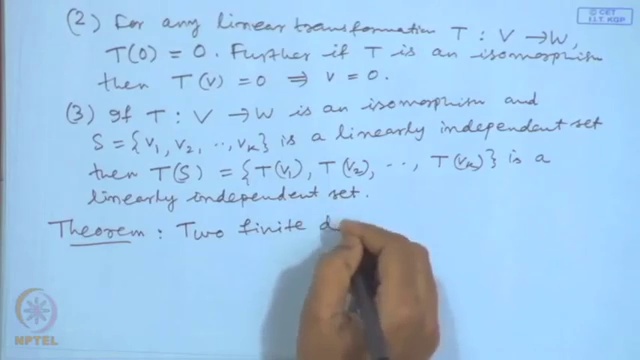 © CET
I.I.T. KGP
(2) For any linear transformation T : V → W,
T(0) = 0. Further if T is an isomorphism
then T(v) = 0 ⇒ v = 0.
(3) If T : V → W is an isomorphism and
S = {v₁, v₂, .., vₖ} is a linearly independent set
then T(S) = {T(v₁), T(v₂), .., T(vₖ)} is a
linearly independent set.
Theorem : Two finite d
NPTEL